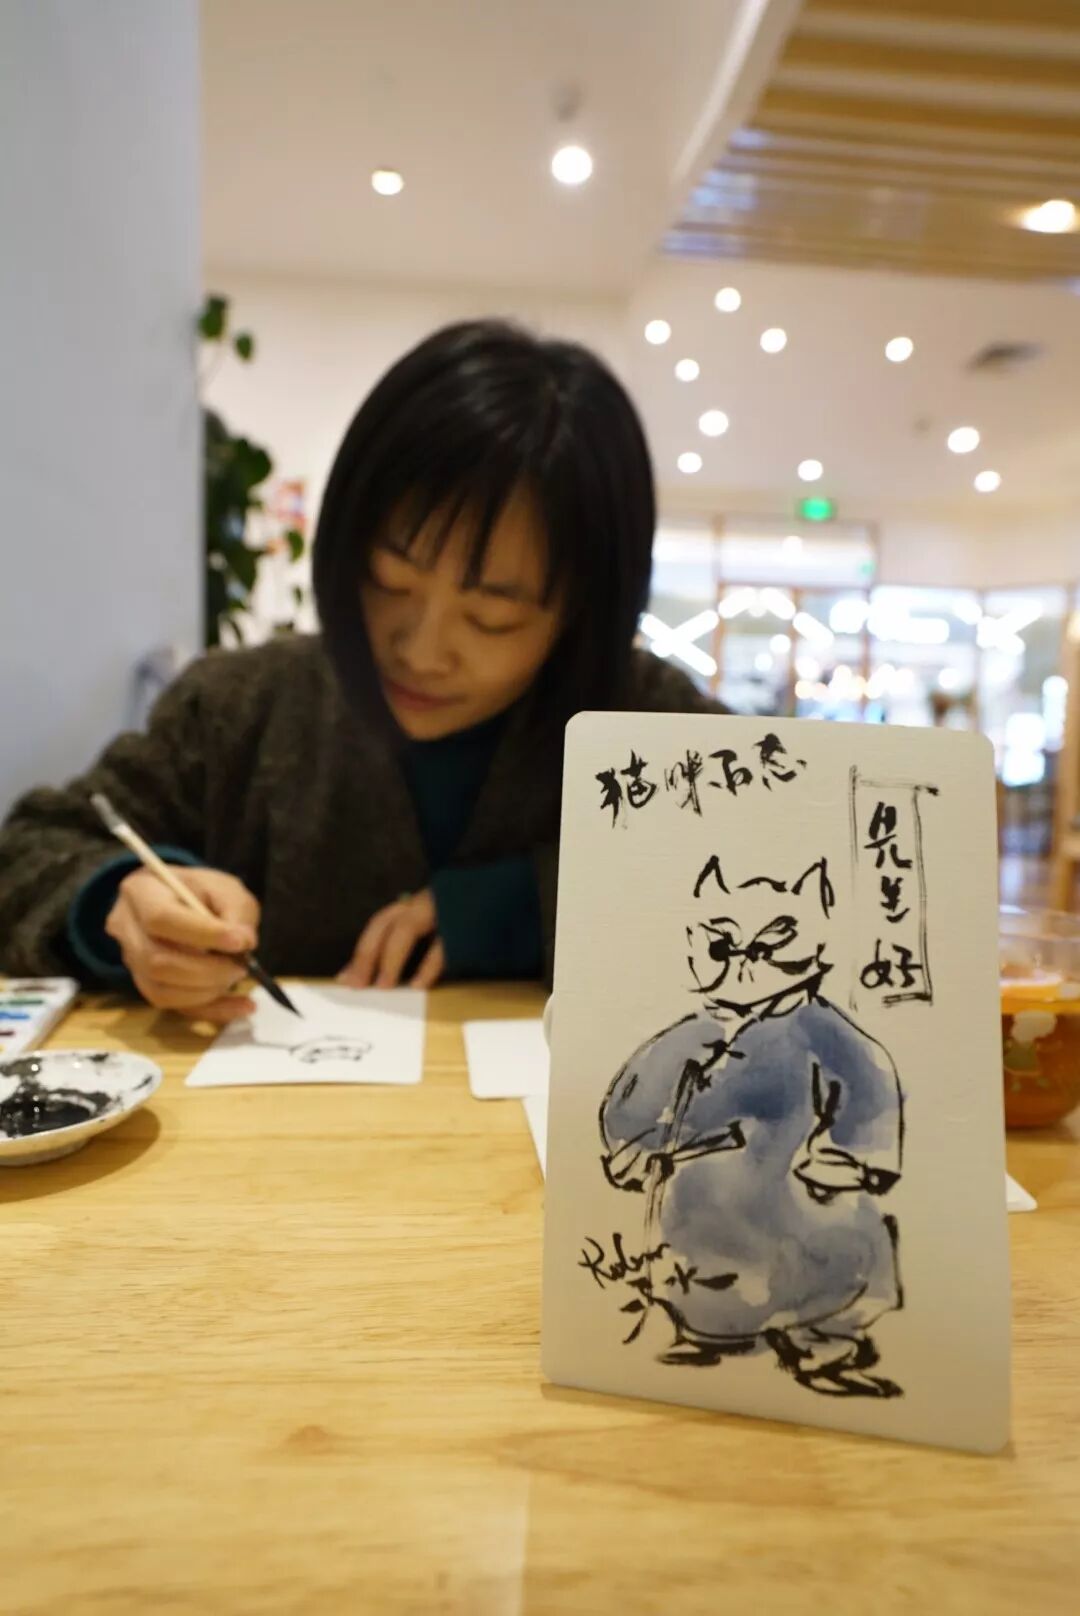 猫咪百态
先生好